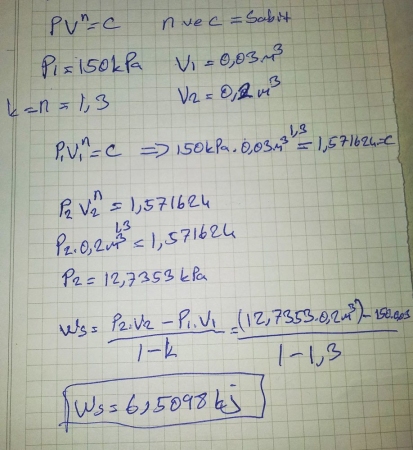 PVⁿ=C n ve c = Sabit
P₁=150kPa V₁=0,03m³
k=n=1,3 V₂=0,2m³
P₁V₁ⁿ=C ⇒ 150kPa.0,03m³^1,3=1,571624=C
P₂V₂ⁿ=1,571624
P₂.0,2m³^1,3=1,571624
P₂=12,7353kPa
Ws=(P₂.V₂-P₁.V₁)/(1-k)=((12,7353.0,2m³)-150.003)/(1-1,3)
Ws=6,5098kj